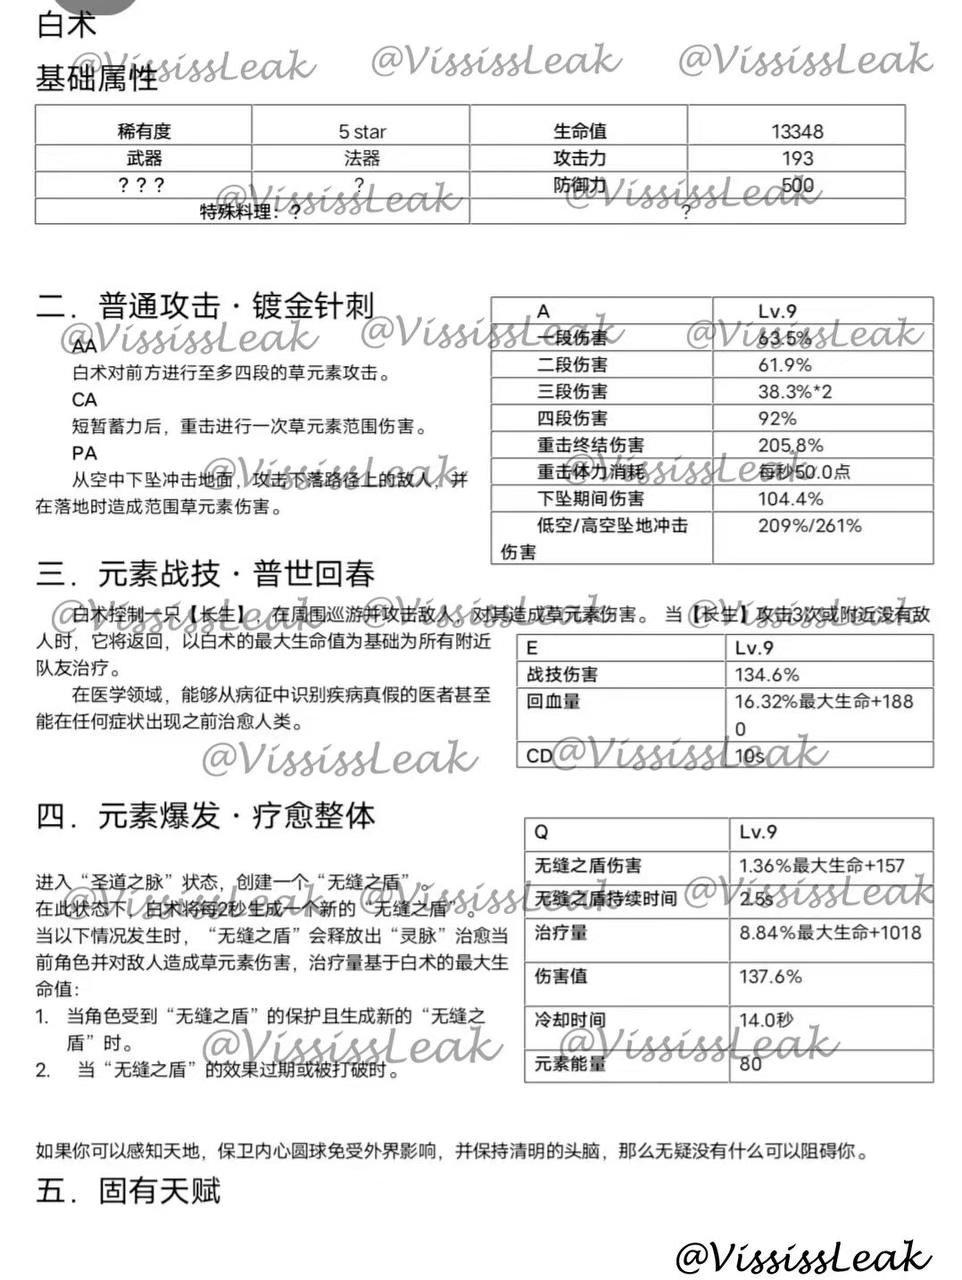 白术
@VississLeak @VississLeak @VississLeak
基础属性
稀有度 5 star 生命值 13348
武器 法器 攻击力 193
？？？ ? 防御力 500
@VississLeak @VississLeak
特殊料理：? ?
二．普通攻击·镀金针刺
@VississLeak @VississLeak @VississLeak
AA
白术对前方进行至多四段的草元素攻击。
CA
短暂蓄力后，重击进行一次草元素范围伤害。
PA
@VississLeak @VississLeak
从空中下坠冲击地面，攻击下落路径上的敌人，并
在落地时造成范围草元素伤害。
A Lv.9
一段伤害 63.5%
二段伤害 61.9%
三段伤害 38.3%*2
四段伤害 92%
重击终结伤害 205.8%
重击体力消耗 每秒50.0点
下坠期间伤害 104.4%
低空/高空坠地冲击 209%/261%
伤害
三．元素战技·普世回春
@VississLeak @VississLeak @VississLeak
白术控制一只【长生】，在周围巡游并攻击敌人，对其造成草元素伤害。 当【长生】攻击3次或附近没有敌
人时，它将返回，以白术的最大生命值为基础为所有附近
队友治疗。
在医学领域，能够从病征中识别疾病真假的医者甚至
能在任何症状出现之前治愈人类。
E Lv.9
战技伤害 134.6%
回血量 16.32%最大生命+188
0
CD 10s
@VississLeak @VississLeak
四．元素爆发·疗愈整体
进入“圣道之脉”状态，创建一个“无缝之盾”。
@VississLeak @VississLeak @VississLeak
在此状态下，白术将每2秒生成一个新的“无缝之盾”。
当以下情况发生时，“无缝之盾”会释放出“灵脉”治愈当
前角色并对敌人造成草元素伤害，治疗量基于白术的最大生
命值：
1. 当角色受到“无缝之盾”的保护且生成新的“无缝之
盾”时。
@VississLeak @VississLeak
2. 当“无缝之盾”的效果过期或被打破时。
Q Lv.9
无缝之盾伤害 1.36%最大生命+157
无缝之盾持续时间 2.5s
治疗量 8.84%最大生命+1018
伤害值 137.6%
冷却时间 14.0秒
元素能量 80
如果你可以感知天地，保卫内心圆球免受外界影响，并保持清明的头脑，那么无疑没有什么可以阻碍你。
五．固有天赋
@VississLeak